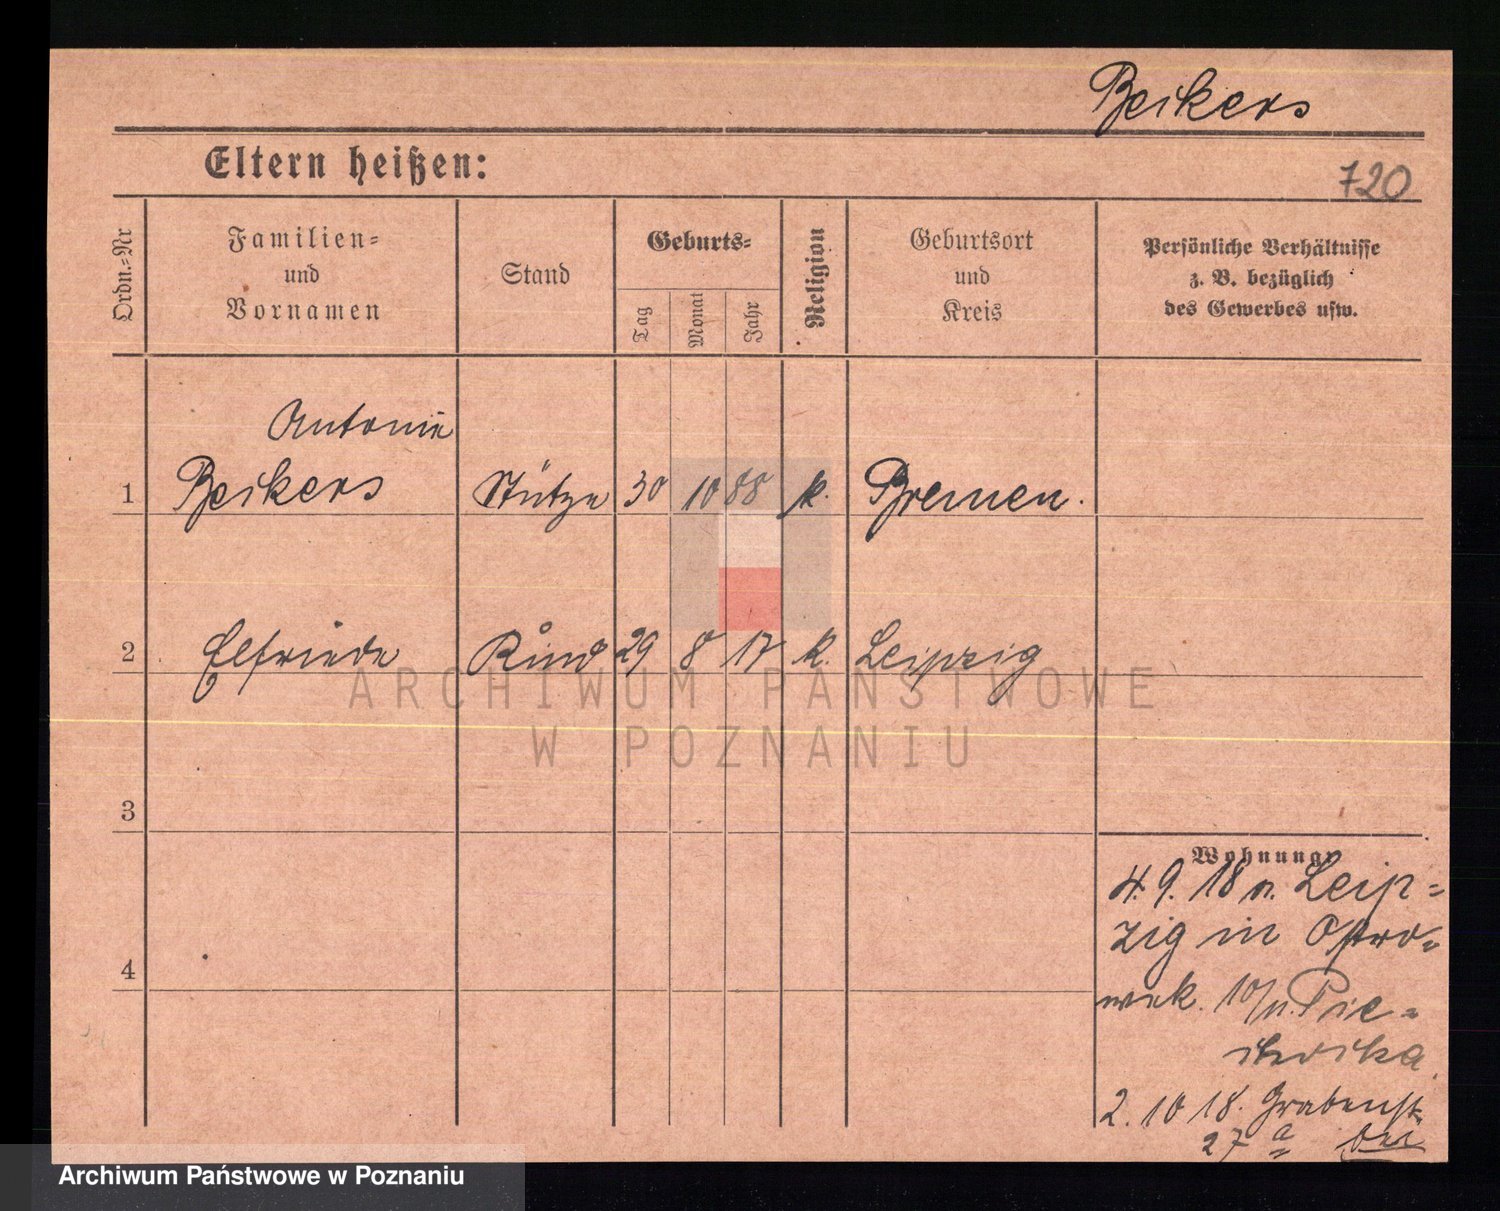 Beikers
Eltern heißen:
720
Ordn.-Nr
Familien-
und
Vornamen
Stand
Geburts-
Tag
Monat
Jahr
Religion
Geburtsort
und
Kreis
Persönliche Verhältnisse
z. B. bezüglich
des Gewerbes usw.
Antonie
1 Beikers Stütze 30 10 88 k. Bremen.
2 Elfriede Kind 29 8 17 k. Leipzig
ARCHIWUM PAŃSTWOWE
W POZNANIU
3
Wohnung
4. 9. 18 v. Leip-
zig in Ostro-
4
2. 10 18. Grabenstr.
27 a bei
Archiwum Państwowe w Poznaniu